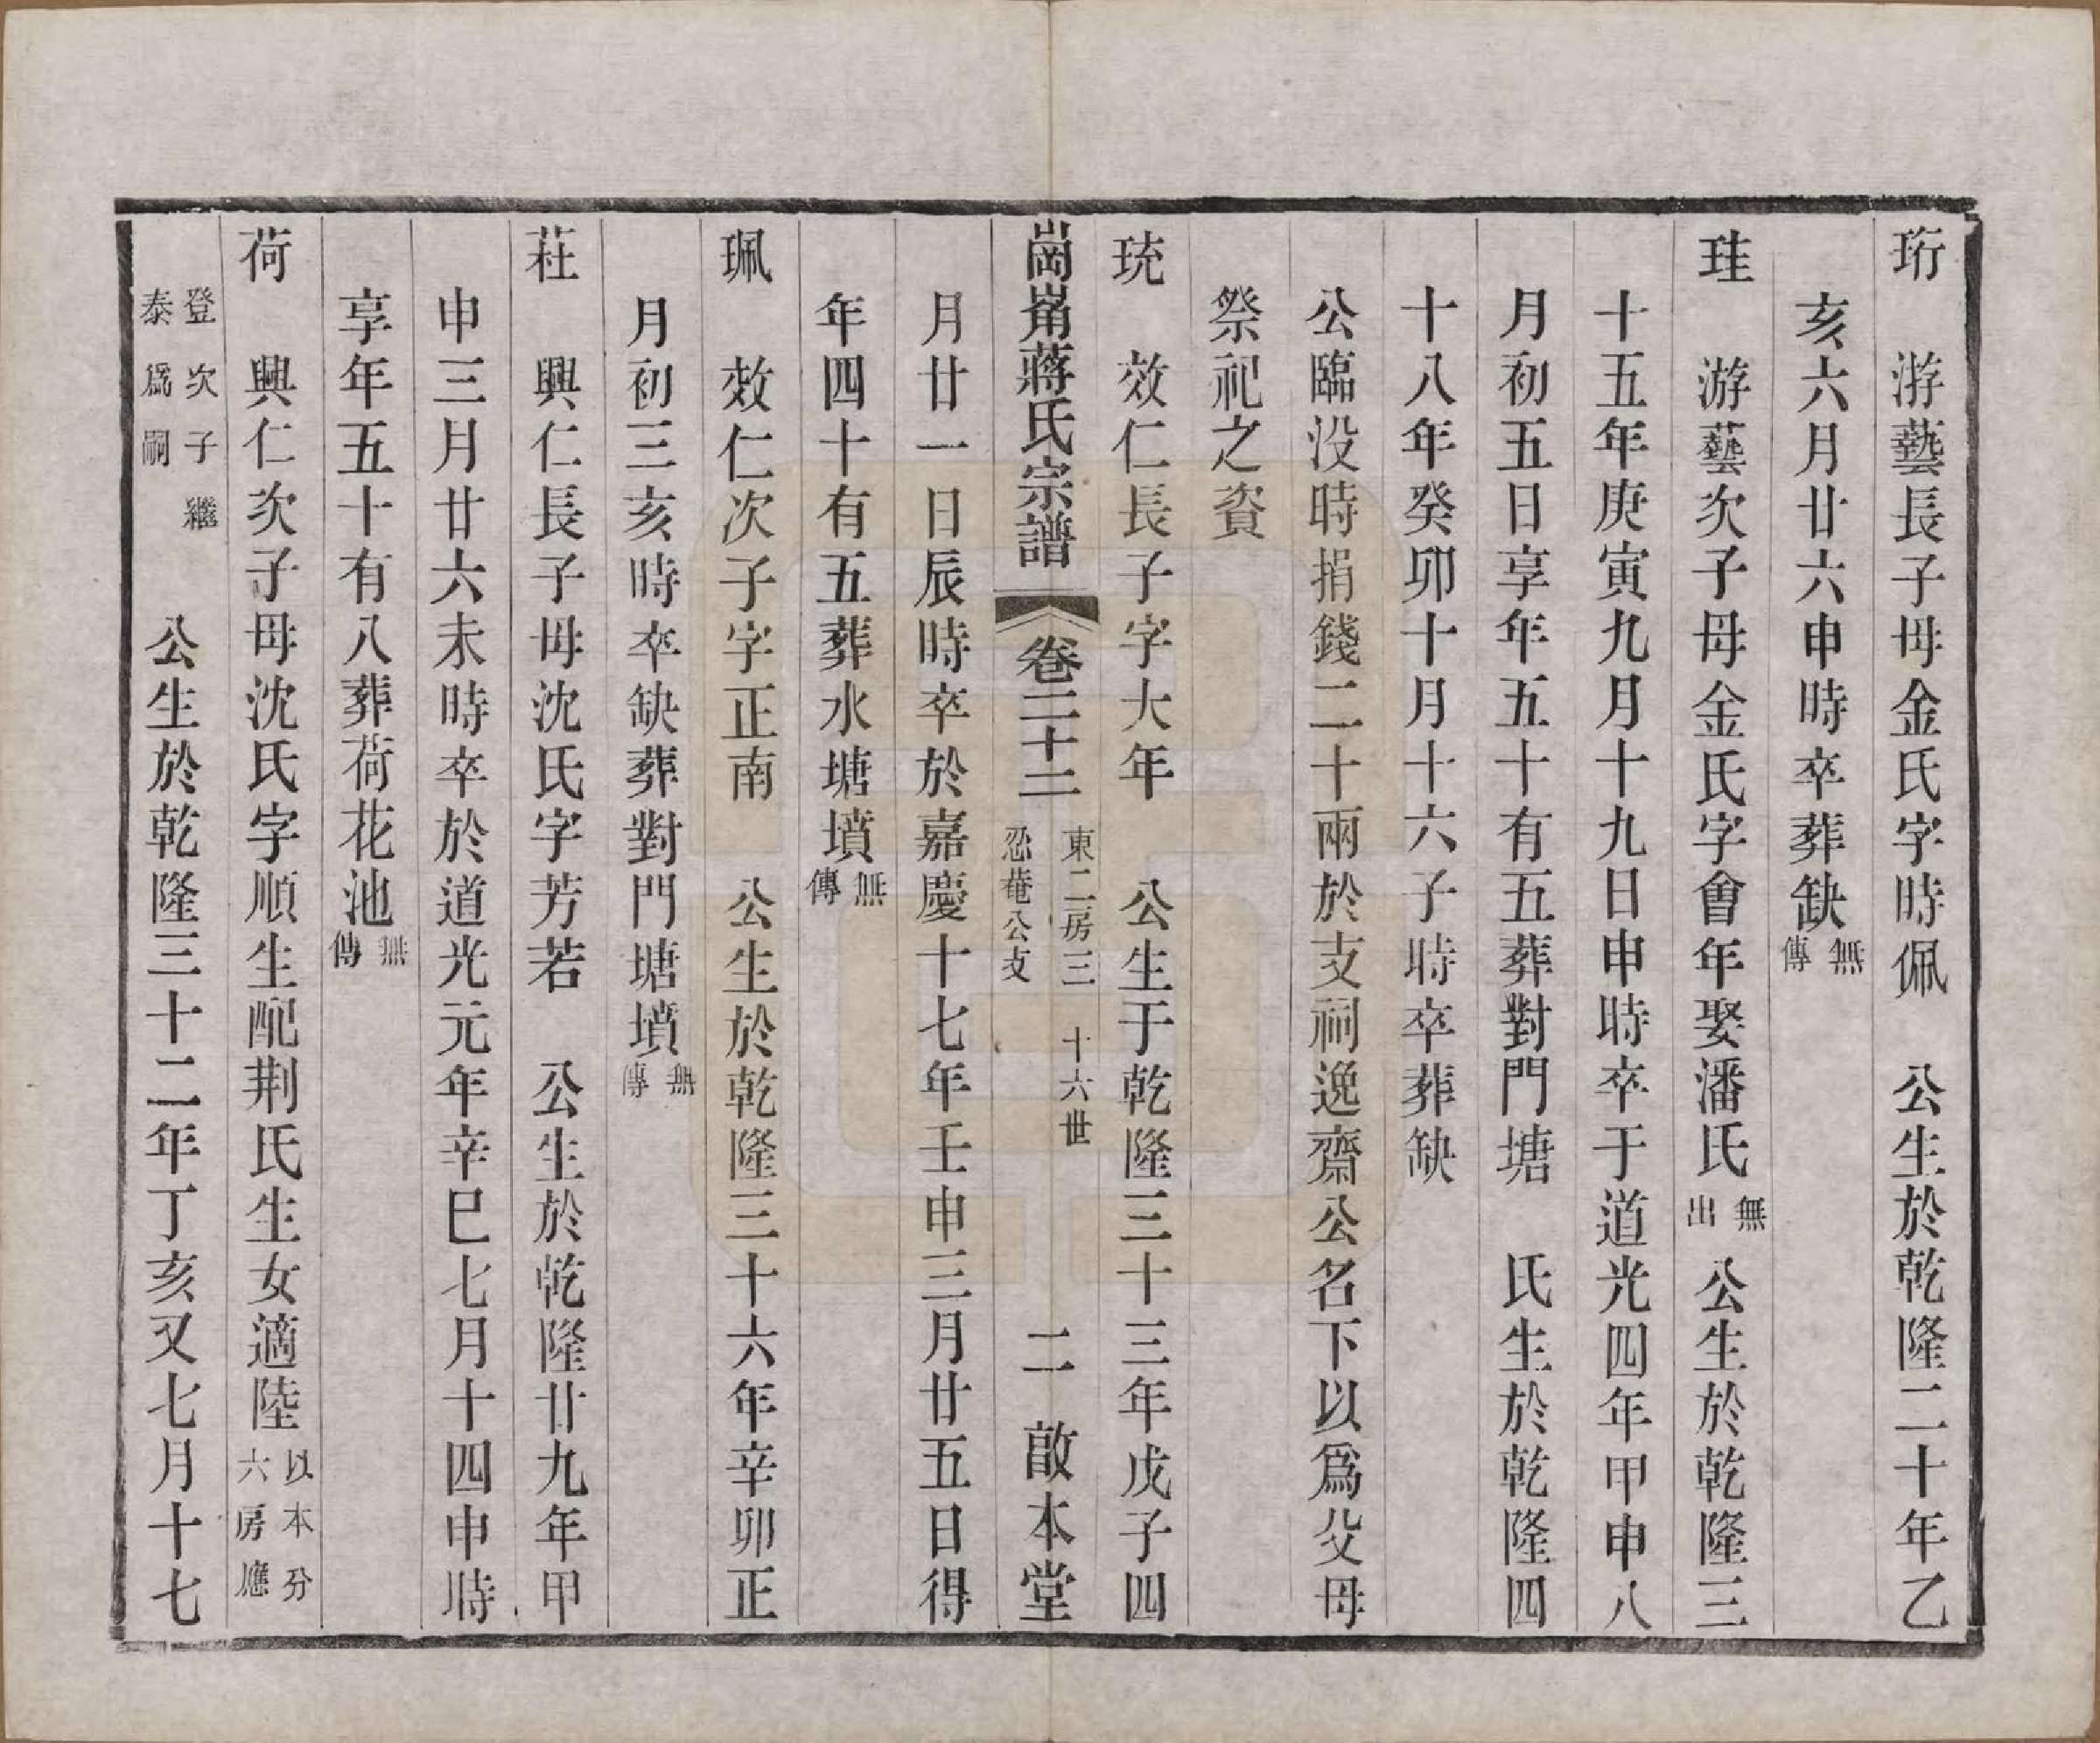 珩　游藝長子母金氏字時佩　公生於乾隆二十年乙
亥六月廿六申時卒葬缺無傳
珪　游藝次子母金氏字會年娶潘氏無出　公生於乾隆三
十五年庚寅九月十九日申時卒于道光四年甲申八
月初五日享年五十有五葬對門塘　氏生於乾隆四
十八年癸卯十月十六子時卒葬缺
公臨没時捐錢二十兩於支祠逸齋公名下以爲父母
祭祀之資
珫　效仁長子字大年　公生于乾隆三十三年戊子四
崗崗蔣氏宗譜　卷二十二　東二房三忍菴公支　十六世　二　敢本堂
月廿一日辰時卒於嘉慶十七年壬申三月廿五日得
年四十有五葬水塘墳無傳
珮　效仁次子字正南　公生於乾隆三十六年辛卯正
月初三亥時卒缺葬對門塘墳無傳
莊　興仁長子母沈氏字芳若　公生於乾隆廿九年甲
申三月廿六未時卒於道光元年辛巳七月十四申時
享年五十有八葬荷花池無傳
荷　興仁次子母沈氏字順生配荆氏生女適陸以本分六房應
登次子繼泰爲嗣　公生於乾隆三十二年丁亥又七月十七